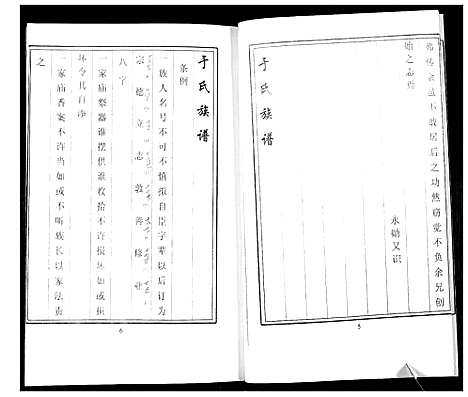 于氏族谱
弗传余虽不敢居后之功然窃觉不负余兄创
始之志云
永勋又识
5
于氏族谱
条例
一族人名号不可不慎拟自臣字辈以后订为
宗德立志敦善修业
八字
一家庙祭器谁摆供谁收拾不许损坏如或损
坏令其自添
一家庙香案不许当如或不听族长以家法责
之
6